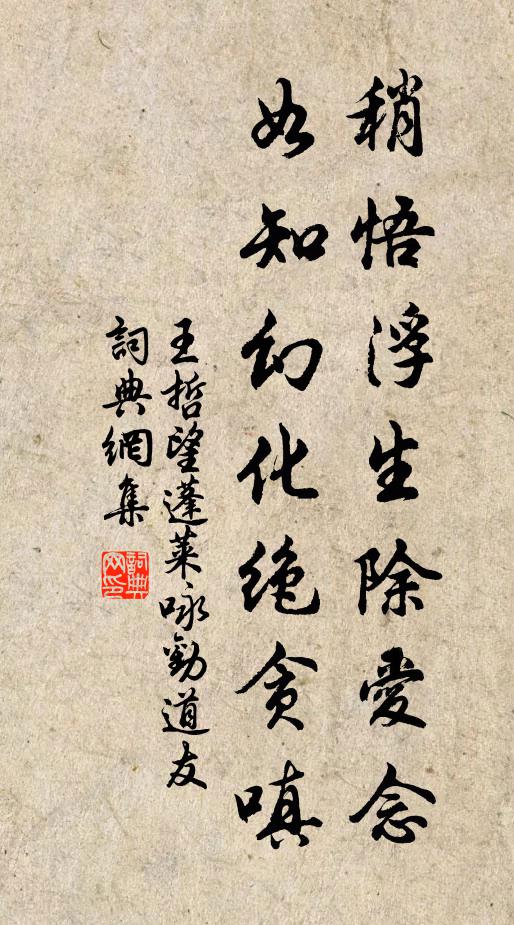 稍悟浮生除愛念
如知幻化绝贪嗔
王哲望蓬莱咏勸道友
詞典網集
詞典网印